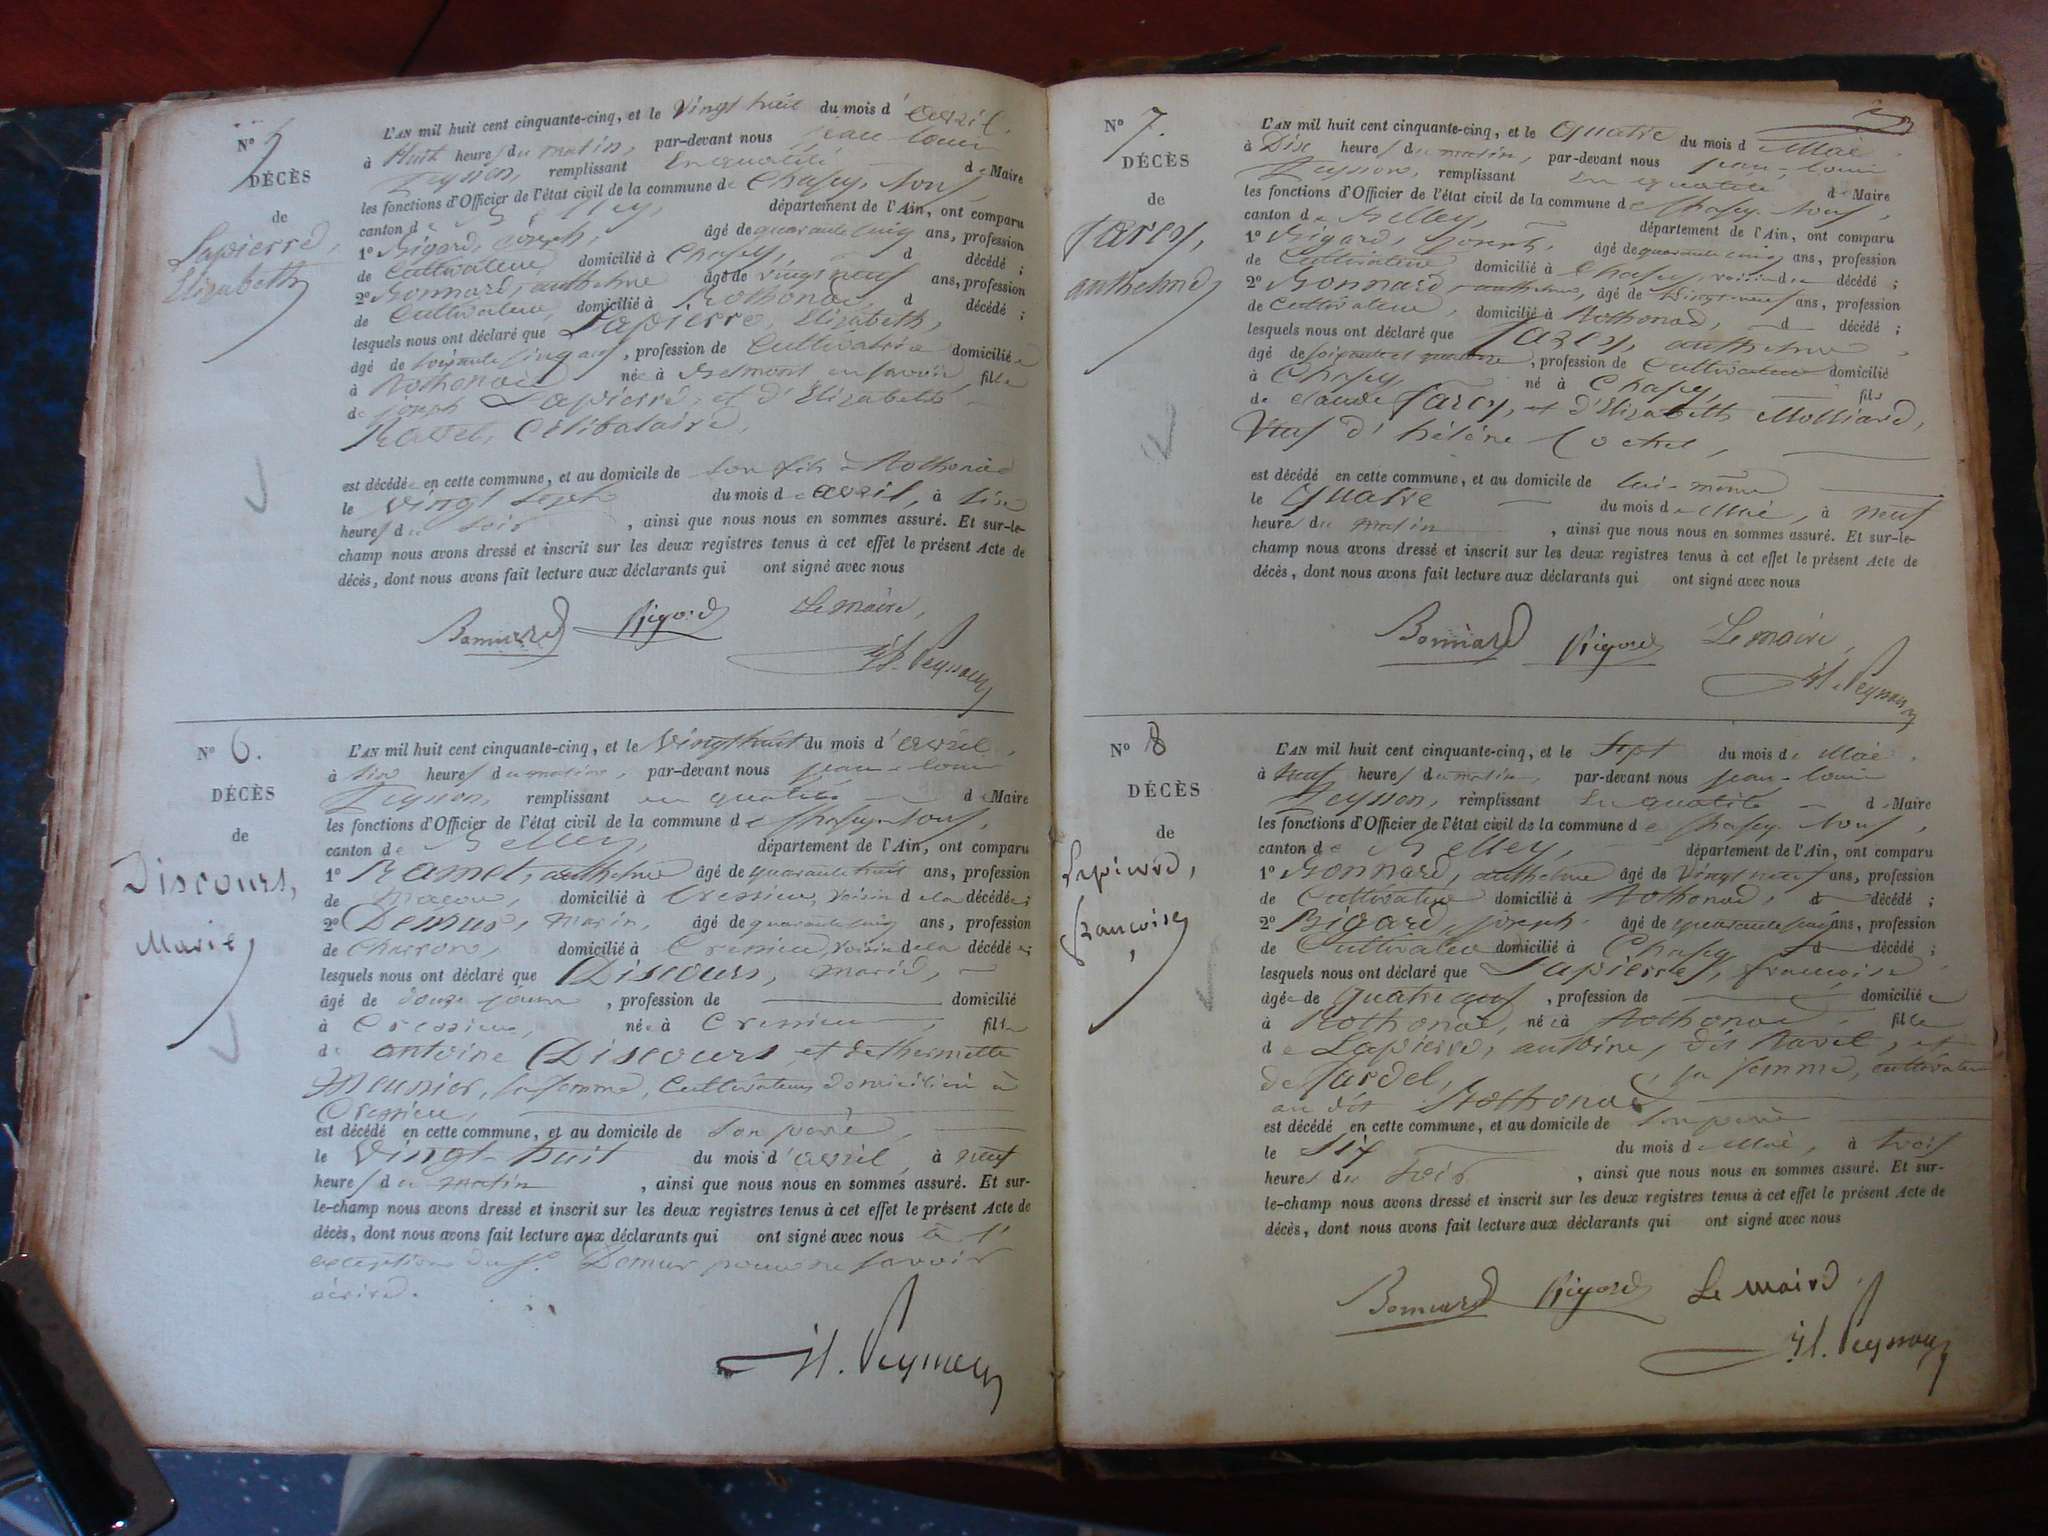 N° 5
DÉCÈS
de
Lapierre,
Elizabeth
L'AN mil huit cent cinquante-cinq, et le Vingt huit du mois d'avril,
à Huit heures du matin, par-devant nous jean-louis
Peysson, remplissant en qualité de Maire
les fonctions d'Officier de l'état civil de la commune de Chasey-Bons,
canton de Belley, département de l'Ain, ont comparu
1° Rigard, joseph, âgé de quarante cinq ans, profession
de Cultivateur, domicilié à Chasey, d décédé ;
2° Bonnard, anthelme âgé de vingt neuf ans, profession
de Cultivateur, domicilié à Rothonod, d décédé ;
lesquels nous ont déclaré que Lapierre, Elizabeth,
âgé de soixante cinq ans, profession de Cultivatrice domiciliée
à Rothonod née à Belmont en savoie, fille
de joseph Lapierre, et d'Elizabeth
Ravet, Célibataire,
est décédée en cette commune, et au domicile de son fils à Rothonod
le vingt sept du mois d'avril, à six
heures du soir, ainsi que nous nous en sommes assuré. Et sur-le-
champ nous avons dressé et inscrit sur les deux registres tenus à cet effet le présent Acte de
décès, dont nous avons fait lecture aux déclarants qui ont signé avec nous
Bonnard Rigard Le maire,
Jl. Peysson
N° 6.
DÉCÈS
de
Discours,
Marie
L'AN mil huit cent cinquante-cinq, et le Vingt huit du mois d'avril,
à dix heures du matin, par-devant nous jean-louis
Peysson, remplissant en qualité de Maire
les fonctions d'Officier de l'état civil de la commune de Chasey-Bons,
canton de Belley, département de l'Ain, ont comparu
1° Ramel, anthelme âgé de quarante huit ans, profession
de maçon, domicilié à Cressieu, voisin de la décédée ;
2° Demur, marin, âgé de quarante cinq ans, profession
de Charron, domicilié à Cressieu, voisin de la décédée ;
lesquels nous ont déclaré que Discours, marie,
âgé de douze jours, profession de domicilié
à Cressieu, née à Cressieu, fille
de antoine Discours et de thermette
Meunier, sa femme, Cultivateurs domiciliés à
Cressieu,
est décédé en cette commune, et au domicile de son père,
le Vingt-huit du mois d'avril, à neuf
heures du matin, ainsi que nous nous en sommes assuré. Et sur-
le-champ nous avons dressé et inscrit sur les deux registres tenus à cet effet le présent Acte de
décès, dont nous avons fait lecture aux déclarants qui ont signé avec nous à l'
exception du Sr. Demur pour ne savoir
écrire.
Jl. Peysson
N° 7.
DÉCÈS
de
Tarcy,
anthelme
L'AN mil huit cent cinquante-cinq, et le quatre du mois de Mai,
à Dix heures du matin, par-devant nous jean-louis
Peysson, remplissant en qualité de Maire
les fonctions d'Officier de l'état civil de la commune de Chasey-Bons,
canton de Belley, département de l'Ain, ont comparu
1° Rigard, joseph, âgé de quarante cinq ans, profession
de Cultivateur domicilié à Chasey, voisin du décédé ;
2° Bonnard, anthelme, âgé de vingt-neuf ans, profession
de Cultivateur, domicilié à Rothonod, d décédé ;
lesquels nous ont déclaré que Tarcy, anthelme,
âgé de soixante et quatorze, profession de Cultivateur domicilié
à Chasey, né à Chasey, fils
de claude Tarcy, et d'Elizabeth Molliard,
Veuf d'hélène Cochet,
est décédé en cette commune, et au domicile de lui-même
le Quatre du mois de Mai, à neuf
heures du matin, ainsi que nous nous en sommes assuré. Et sur-le-
champ nous avons dressé et inscrit sur les deux registres tenus à cet effet le présent Acte de
décès, dont nous avons fait lecture aux déclarants qui ont signé avec nous
Bonnard Rigard Le maire,
Jl. Peysson
N° 8
DÉCÈS
de
Lapierre,
françoise
L'AN mil huit cent cinquante-cinq, et le Sept du mois de Mai,
à neuf heures du matin, par-devant nous jean-louis
Peysson, remplissant en qualité de Maire
les fonctions d'Officier de l'état civil de la commune de Chasey-Bons,
canton de Belley, département de l'Ain, ont comparu
1° Bonnard, anthelme âgé de Vingt neuf ans, profession
de Cultivateur domicilié à Rothonod, d décédé ;
2° Rigard, joseph âgé de quarante cinq ans, profession
de Cultivateur domicilié à Chasey d décédé ;
lesquels nous ont déclaré que Lapierre, françoise,
âgée de quatre ans, profession de domiciliée
à Rothonod, née à Rothonod, fille
de Lapierre, antoine, dit Ravet, et
de Tardel, sa femme, cultivateurs
au dit Rothonod
est décédé en cette commune, et au domicile de son père
le Six du mois de Mai, à trois
heures du soir, ainsi que nous nous en sommes assuré. Et sur-
le-champ nous avons dressé et inscrit sur les deux registres tenus à cet effet le présent Acte de
décès, dont nous avons fait lecture aux déclarants qui ont signé avec nous
Bonnard Rigard Le maire
Jl. Peysson